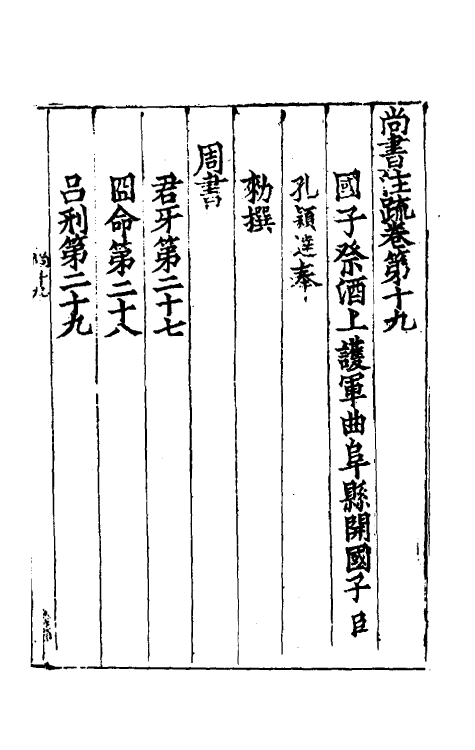 尚書注疏卷第十九
國子祭酒上護軍曲阜縣開國子臣
孔穎達奉
勑撰
周書
君牙第二十七
囧命第二十八
呂刑第二十九